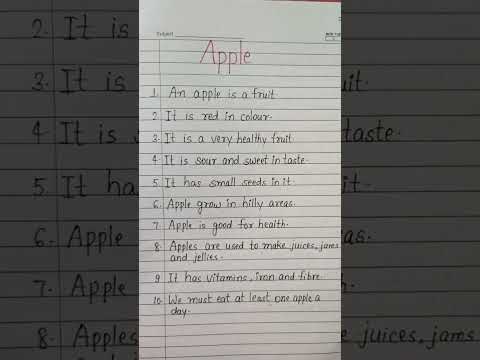 Subject
Apple
1. An apple is a fruit.
2. It is red in colour.
3. It is a very healthy fruit.
4. It is sour and sweet in taste.
5. It has small seeds in it.
6. Apple grow in hilly areas.
7. Apple is good for health.
8. Apples are used to make juices, jams
and jellies.
9. It has vitamins, iron and fibre.
10. We must eat at least one apple a
day.
2. It is
3. It is
4 It is
5. It ha
6. Apple
7. Apple
8. Apples
uit.
taste.
it.
as.
juices, jams